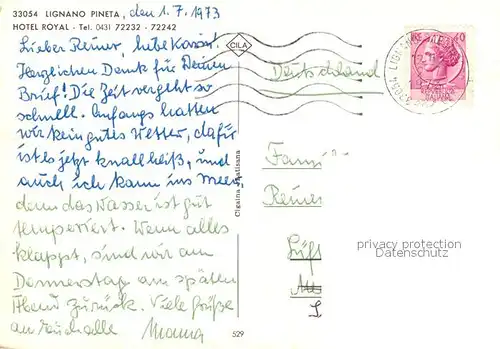 33054 LIGNANO PINETA, den 1.7.1973
HOTEL ROYAL - Tel. 0431 72232 - 72242
Lieber Reiner, liebe Karin!
Herzlichen Dank für Deinen
Brief! Die Zeit vergeht so
schnell. Anfangs hatten
wir kein gutes Wetter, dafür
ist es jetzt knallheiß, und
auch ich kann ins Meer,
denn das Wasser ist gut
temperiert. Wenn alles
klappt, sind wir am
Donnerstag am späten
Abend zurück. Viele Grüße
an Euch alle Mama
CILA
Deutschland
Reiner
privacy protection
Datenschutz
529